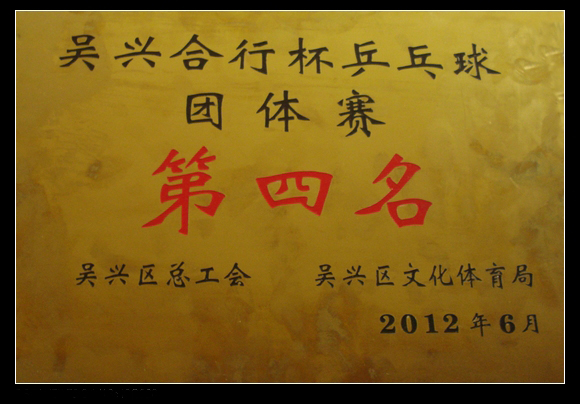 吴兴合行杯乒乓球
团体赛
第四名
吴兴区总工会 吴兴区文化体育局
2012年6月